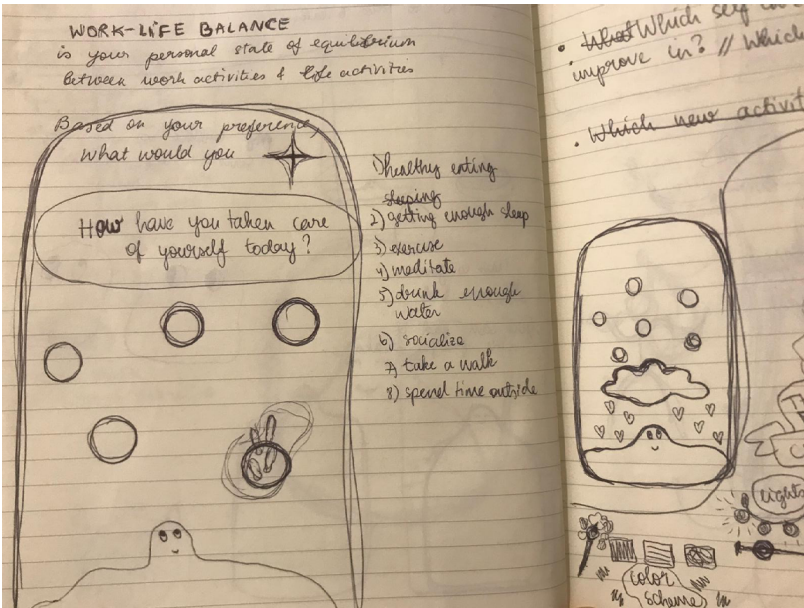 WORK-LIFE BALANCE
is your personal state of equilibrium
between work activities & life activities
Based on your preference,
what would you
How have you taken care
of yourself today?
1) healthy eating
sleeping
2) getting enough sleep
3) exercise
4) meditate
5) drink enough
water
6) socialize
7) take a walk
8) spend time outside
• What Which self
improve in? // Which
• Which new activit
lights
color
scheme